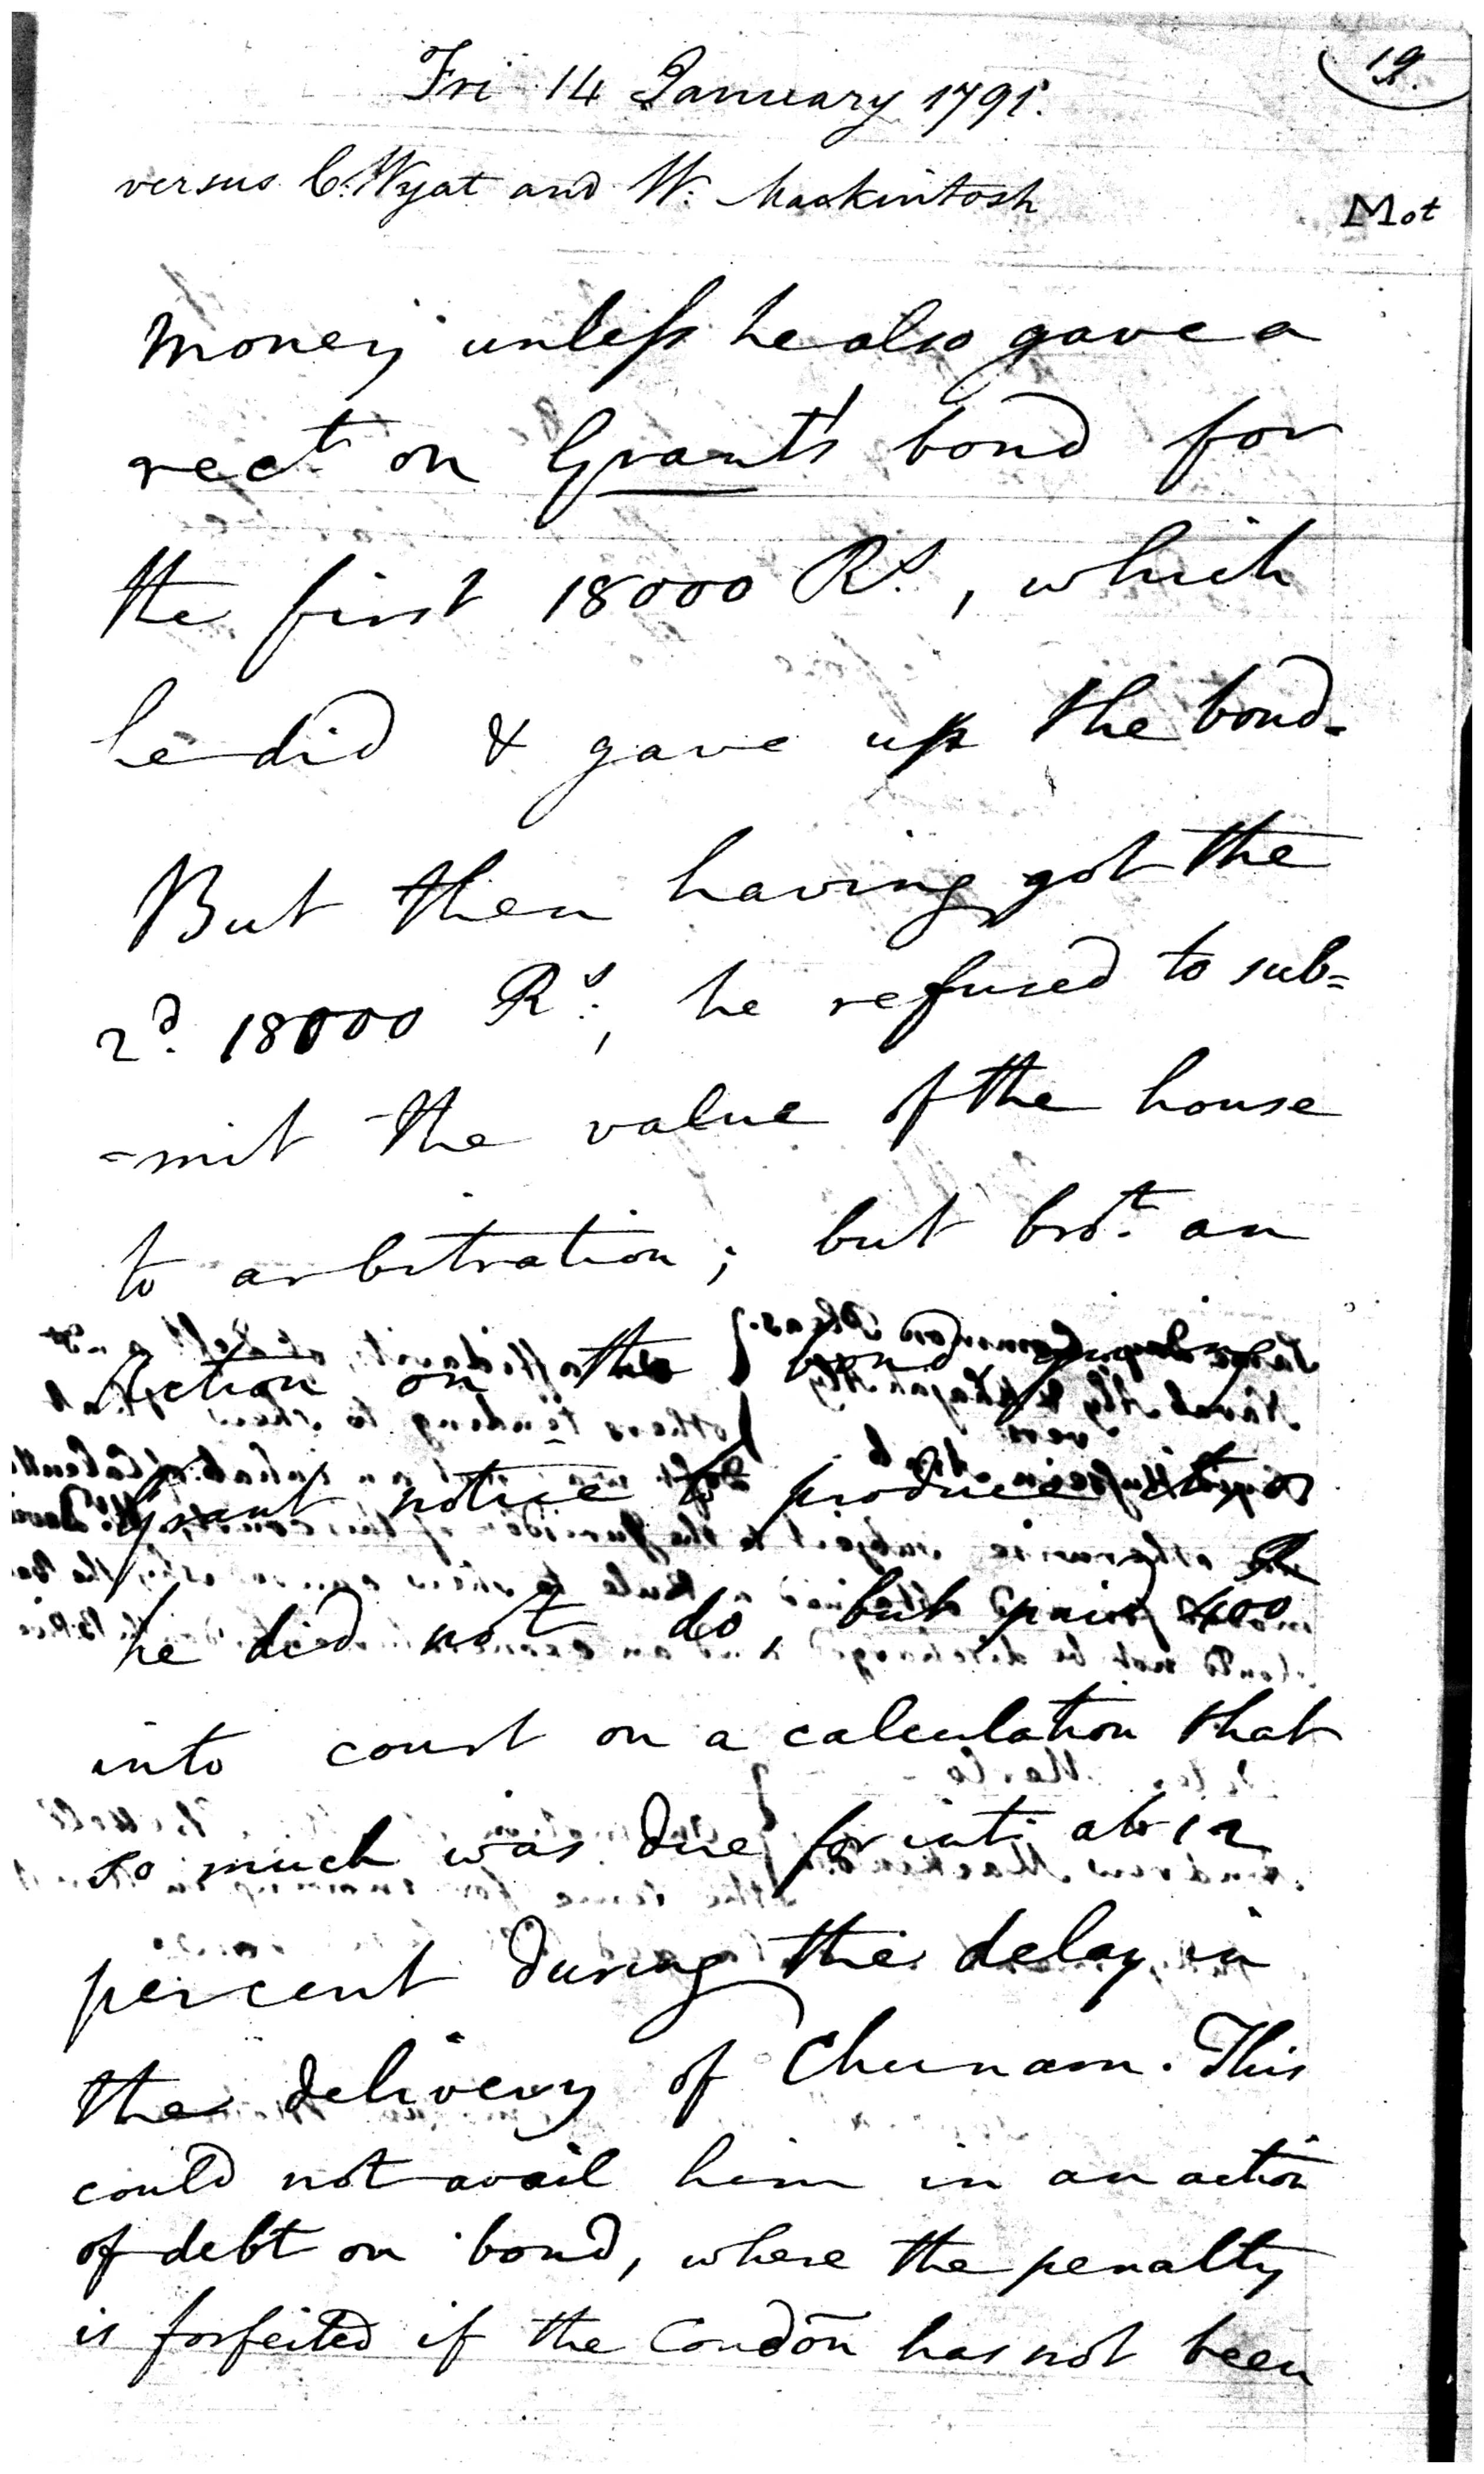 19.
Fri 14 January 1791.
versus C. Wyat and W. Mackintosh
Mot
money unless he also gave a
rect. on Grant's bond for
the first 18000 Rs., which
he did & gave up the bond.
But then having got the
2d. 18000 Rs., he refused to sub=
=mit the value of the house
to arbitration; but brot. an
Action on the bond
Grant notice to produce
he did not do, but paid 400 R
into court on a calculation that
so much was due for int. at 12
percent during the delay in
the delivery of Chunam. This
could not avail him in an action
of debt on bond, where the penalty
is forfeited if the Condon has not been